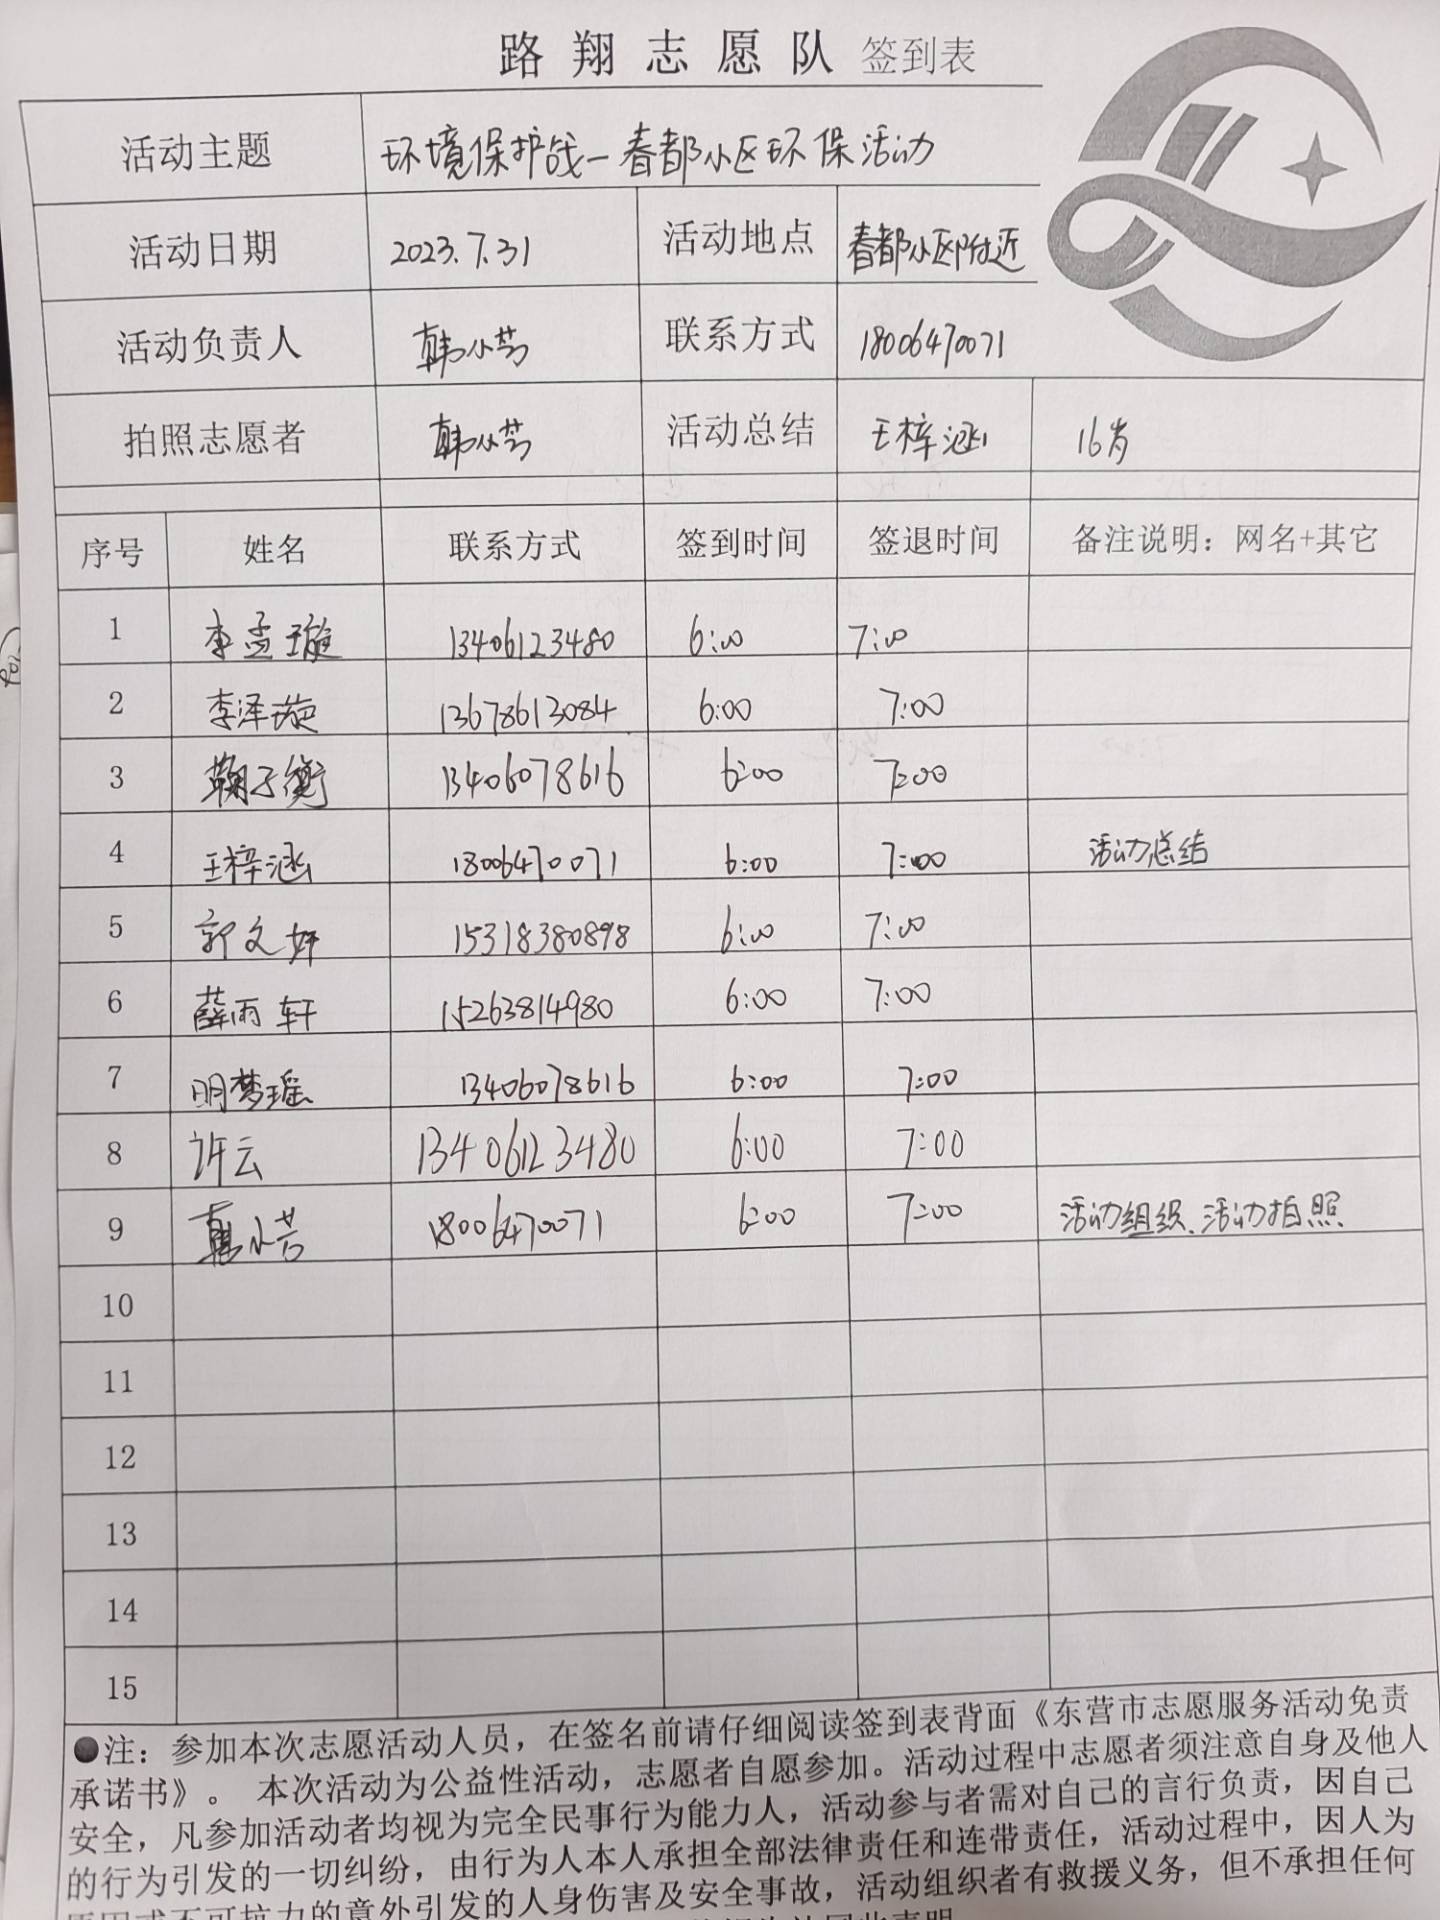 路翔志愿队 签到表
活动主题 环境保护战一春都小区环保活动
活动日期 2023.7.31 活动地点 春都小区附近
活动负责人 韩小芳 联系方式 18006470071
拍照志愿者 韩小芳 活动总结 王梓涵 16岁
序号 姓名 联系方式 签到时间 签退时间 备注说明：网名+其它
1 李孟璇 13406123480 6:00 7:00
2 李泽璇 13678613084 6:00 7:00
3 鞠子衡 13406078616 6:00 7:00
4 王梓涵 18006470071 6:00 7:00 活动总结
5 郭文妍 15318380898 6:00 7:00
6 薛雨轩 15263814980 6:00 7:00
7 明梦瑶 13406078616 6:00 7:00
8 许云 13406123480 6:00 7:00
9 韩小芳 18006470071 6:00 7:00 活动组织、活动拍照
10
11
12
13
14
15
●注：参加本次志愿活动人员，在签名前请仔细阅读签到表背面《东营市志愿服务活动免责
承诺书》。 本次活动为公益性活动，志愿者自愿参加。活动过程中志愿者须注意自身及他人
安全，凡参加活动者均视为完全民事行为能力人，活动参与者需对自己的言行负责，因自己
的行为引发的一切纠纷，由行为人本人承担全部法律责任和连带责任，活动过程中，因人为
原因或不可抗力的意外引发的人身伤害及安全事故，活动组织者有救援义务，但不承担任何